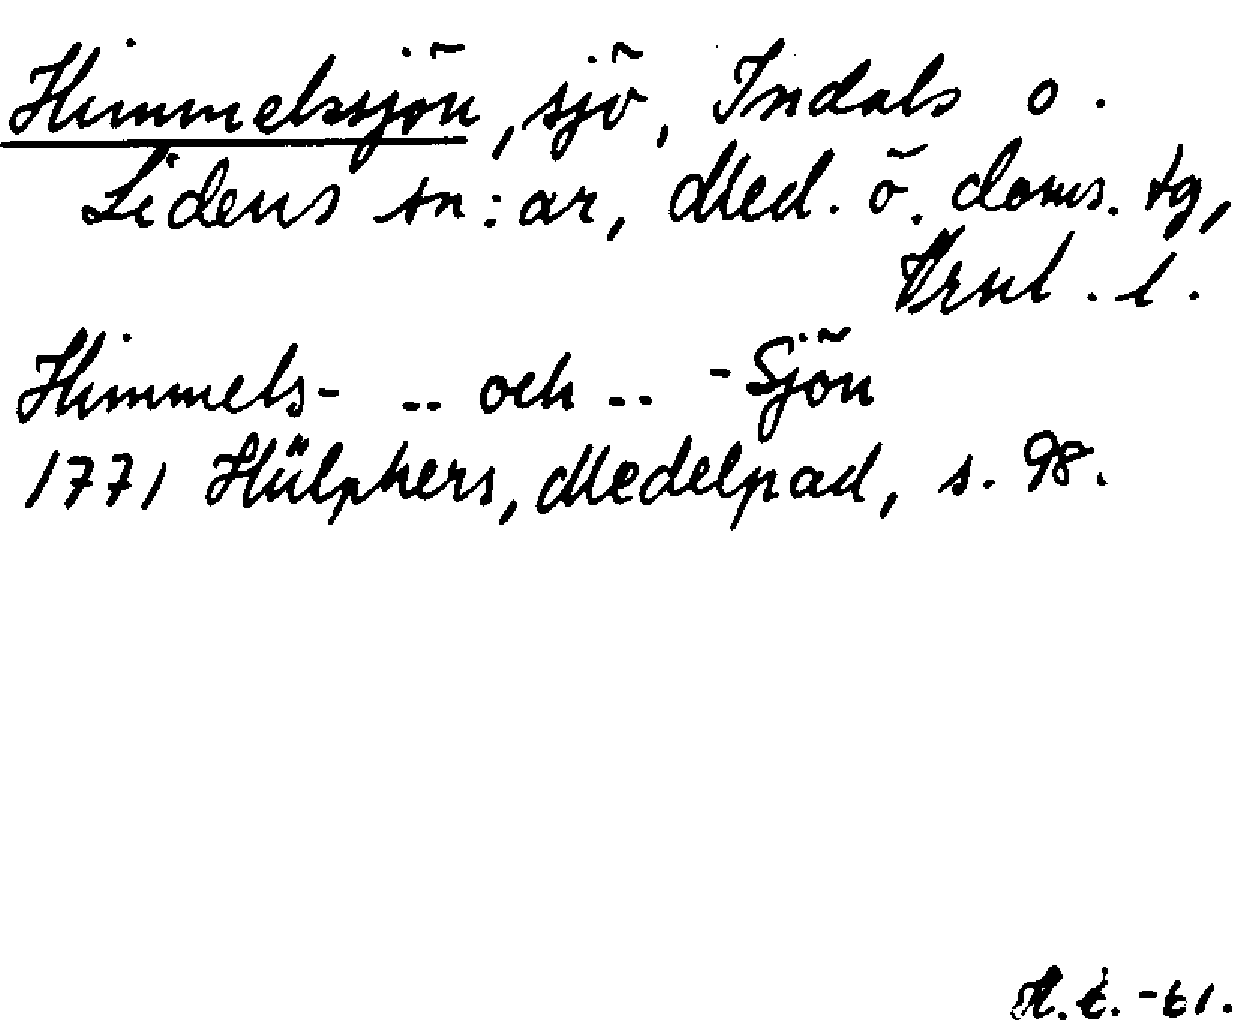 Himmelssjön, sjö, Indals o.
Lidens sn:ar, Med. ö. doms. tg,
Vrnl. l.
Himmels- .. och .. -Sjön
1771 Hülphers, Medelpad, s. 98.
H.E. -61.